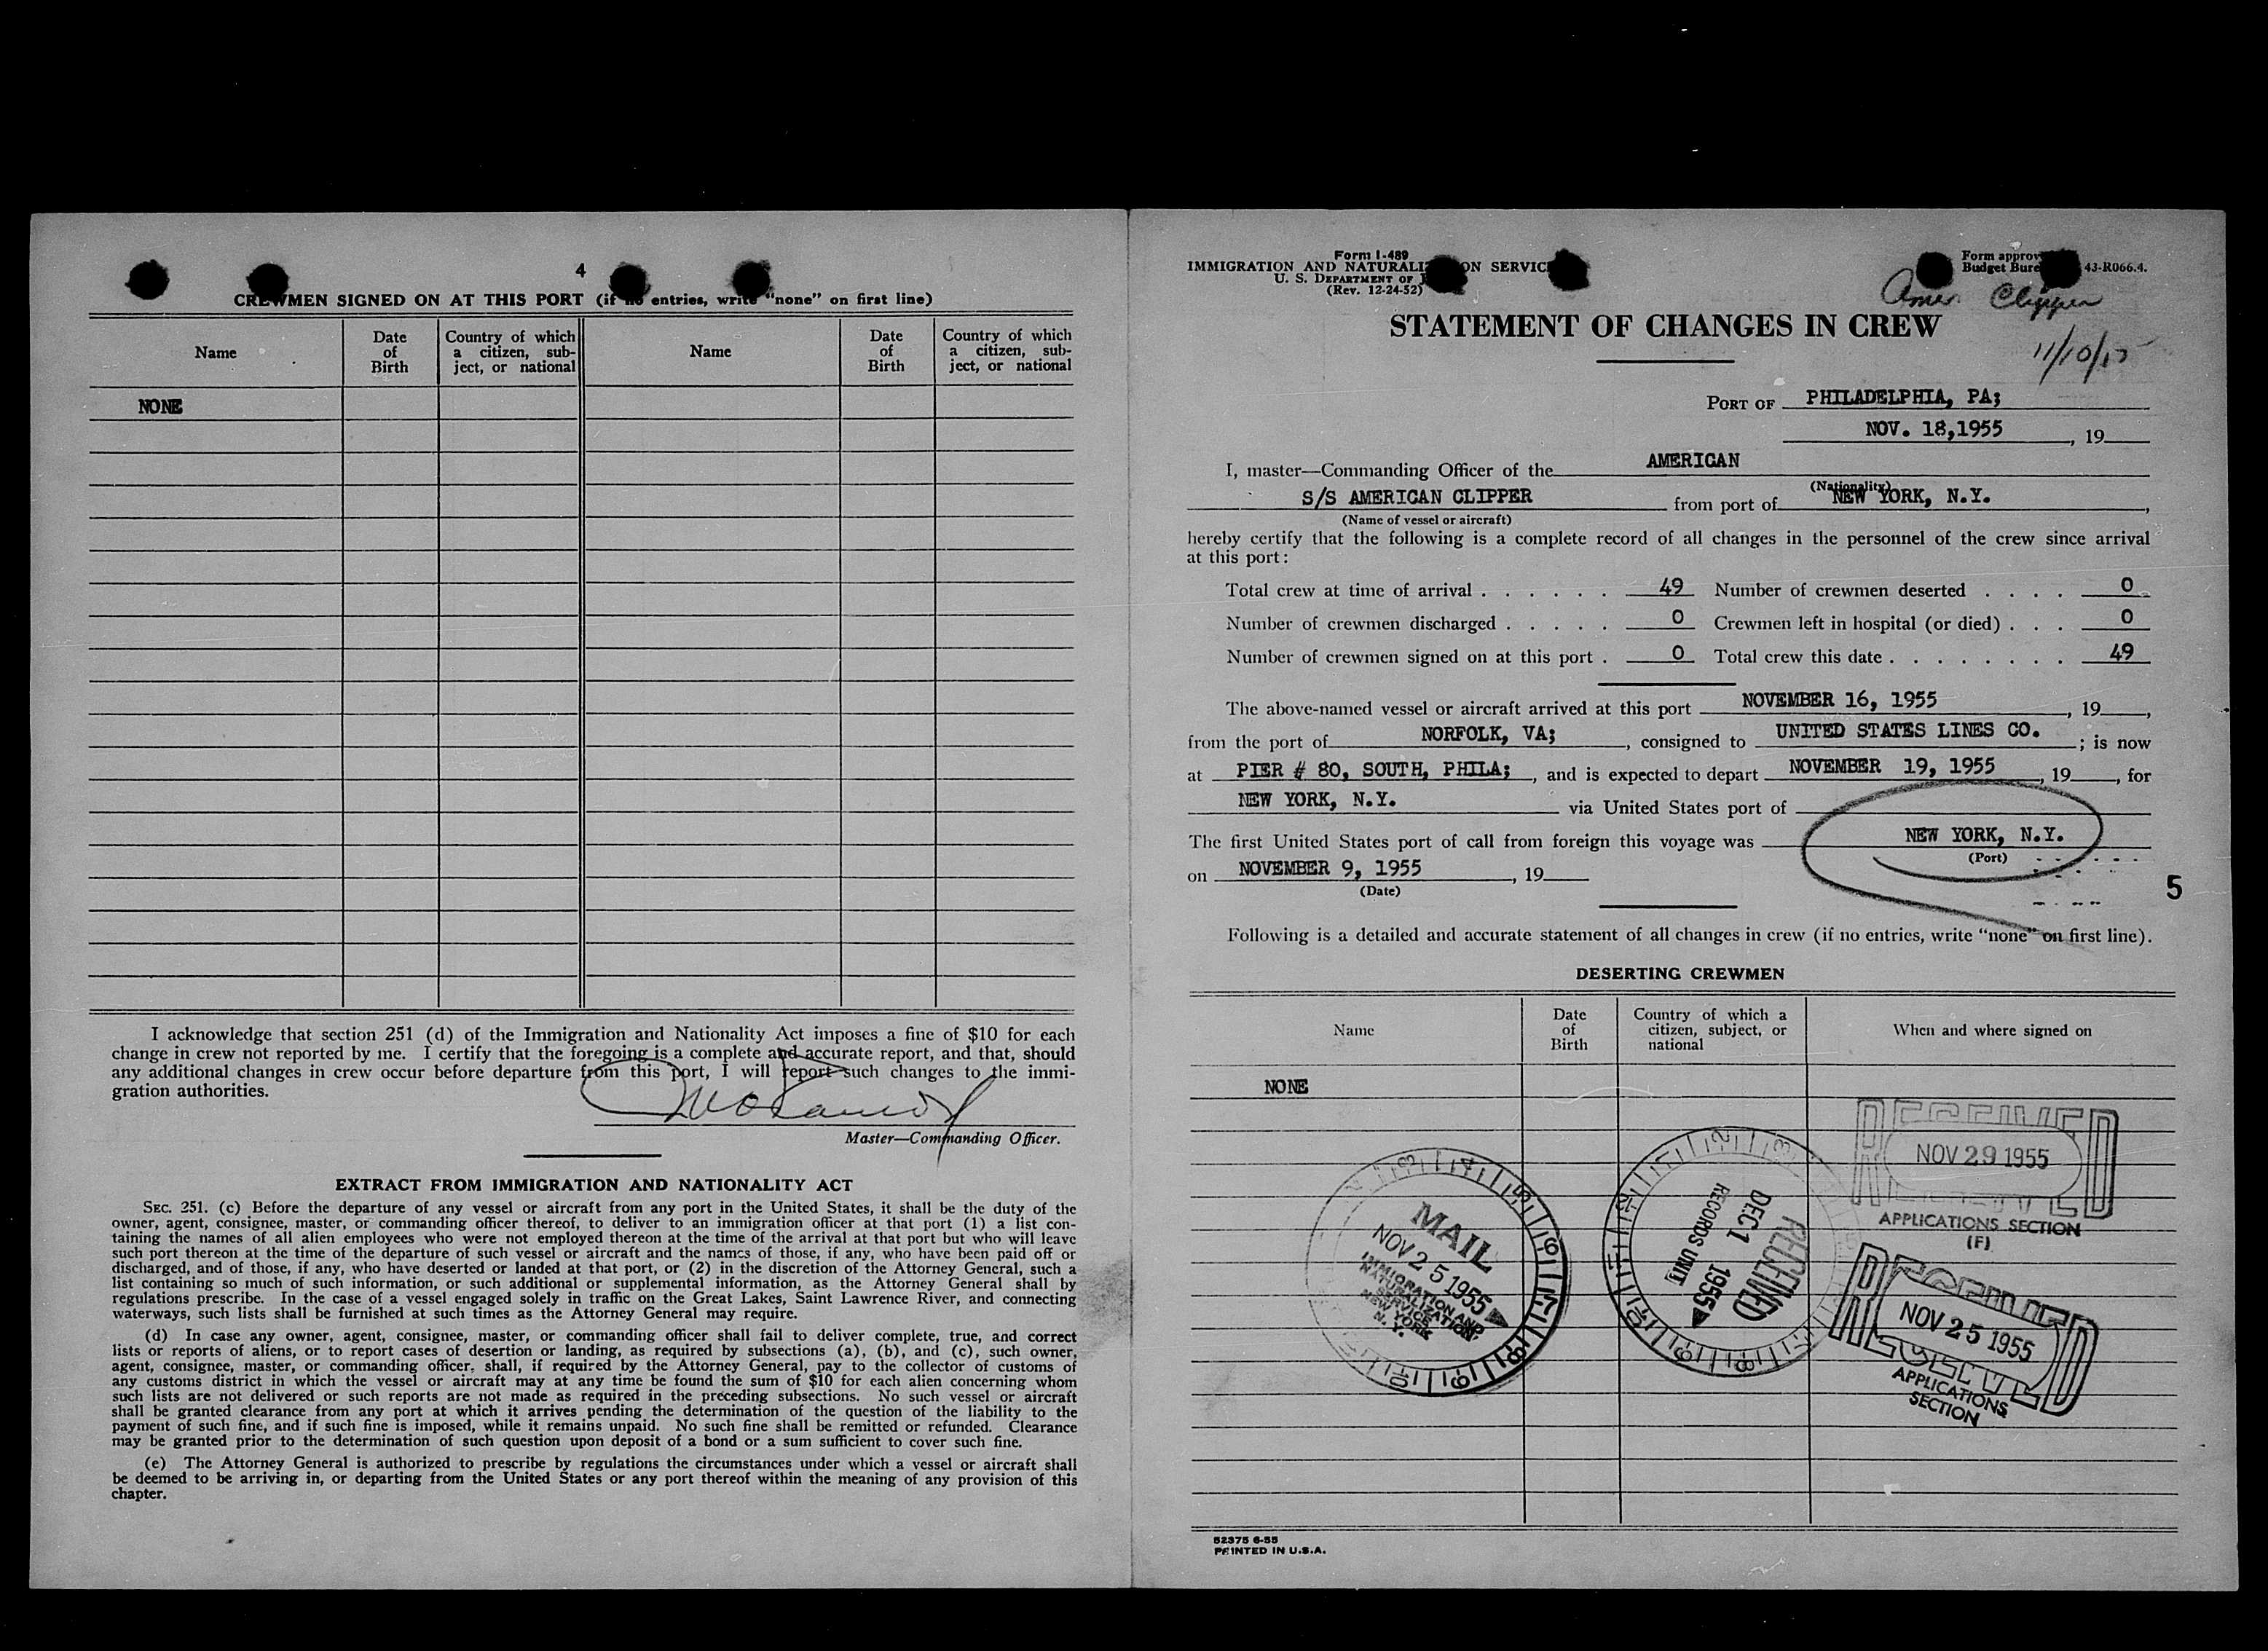 4
CREWMEN SIGNED ON AT THIS PORT (if no entries, write "none" on first line)
Name
Date of Birth
Country of which a citizen, sub-ject, or national
Name
Date of Birth
Country of which a citizen, sub-ject, or national
NONE
I acknowledge that section 251 (d) of the Immigration and Nationality Act imposes a fine of $10 for each
change in crew not reported by me. I certify that the foregoing is a complete and accurate report, and that, should
any additional changes in crew occur before departure from this port, I will report such changes to the immi-
gration authorities.
Master—Commanding Officer.
EXTRACT FROM IMMIGRATION AND NATIONALITY ACT
SEC. 251. (c) Before the departure of any vessel or aircraft from any port in the United States, it shall be the duty of the
owner, agent, consignee, master, or commanding officer thereof, to deliver to an immigration officer at that port (1) a list con-
taining the names of all alien employees who were not employed thereon at the time of the arrival at that port but who will leave
such port thereon at the time of the departure of such vessel or aircraft and the names of those, if any, who have been paid off or
discharged, and of those, if any, who have deserted or landed at that port, or (2) in the discretion of the Attorney General, such a
list containing so much of such information, or such additional or supplemental information, as the Attorney General shall by
regulations prescribe. In the case of a vessel engaged solely in traffic on the Great Lakes, Saint Lawrence River, and connecting
waterways, such lists shall be furnished at such times as the Attorney General may require.
(d) In case any owner, agent, consignee, master, or commanding officer shall fail to deliver complete, true, and correct
lists or reports of aliens, or to report cases of desertion or landing, as required by subsections (a), (b), and (c), such owner,
agent, consignee, master, or commanding officer, shall, if required by the Attorney General, pay to the collector of customs of
any customs district in which the vessel or aircraft may at any time be found the sum of $10 for each alien concerning whom
such lists are not delivered or such reports are not made as required in the preceding subsections. No such vessel or aircraft
shall be granted clearance from any port at which it arrives pending the determination of the question of the liability to the
payment of such fine, and if such fine is imposed, while it remains unpaid. No such fine shall be remitted or refunded. Clearance
may be granted prior to the determination of such question upon deposit of a bond or a sum sufficient to cover such fine.
(e) The Attorney General is authorized to prescribe by regulations the circumstances under which a vessel or aircraft shall
be deemed to be arriving in, or departing from the United States or any port thereof within the meaning of any provision of this
chapter.
Form I-489
IMMIGRATION AND NATURALIZATION SERVICE
U. S. DEPARTMENT OF J
(Rev. 12-24-52)
Form approv
Budget Bure 43-R066.4.
Amer. Clipper
STATEMENT OF CHANGES IN CREW
11/10/
PORT OF PHILADELPHIA, PA;
NOV. 18,1955, 19
I, master—Commanding Officer of the AMERICAN
(Nationality)
S/S AMERICAN CLIPPER from port of NEW YORK, N.Y.,
(Name of vessel or aircraft)
hereby certify that the following is a complete record of all changes in the personnel of the crew since arrival
at this port:
Total crew at time of arrival . . . . . . 49 Number of crewmen deserted . . . . 0
Number of crewmen discharged . . . . . 0 Crewmen left in hospital (or died) . . . 0
Number of crewmen signed on at this port . 0 Total crew this date . . . . . . . . 49
The above-named vessel or aircraft arrived at this port NOVEMBER 16, 1955, 19,
from the port of NORFOLK, VA;, consigned to UNITED STATES LINES CO.; is now
at PIER # 80, SOUTH, PHILA;, and is expected to depart NOVEMBER 19, 1955, 19, for
NEW YORK, N.Y. via United States port of
The first United States port of call from foreign this voyage was NEW YORK, N.Y.
(Port)
on NOVEMBER 9, 1955, 19
(Date)
5
Following is a detailed and accurate statement of all changes in crew (if no entries, write "none" on first line).
DESERTING CREWMEN
Name
Date of Birth
Country of which a citizen, subject, or national
When and where signed on
NONE
MAIL
NOV 25 1955
IMMIGRATION AND
NATURALIZATION
SERVICE
NEW YORK
N.Y.
RECEIVED
DEC 1 1955
RECORDS UNIT
RECEIVED
NOV 29 1955
APPLICATIONS SECTION
(F)
RECEIVED
NOV 25 1955
APPLICATIONS
SECTION
52375 6-55
PRINTED IN U.S.A.